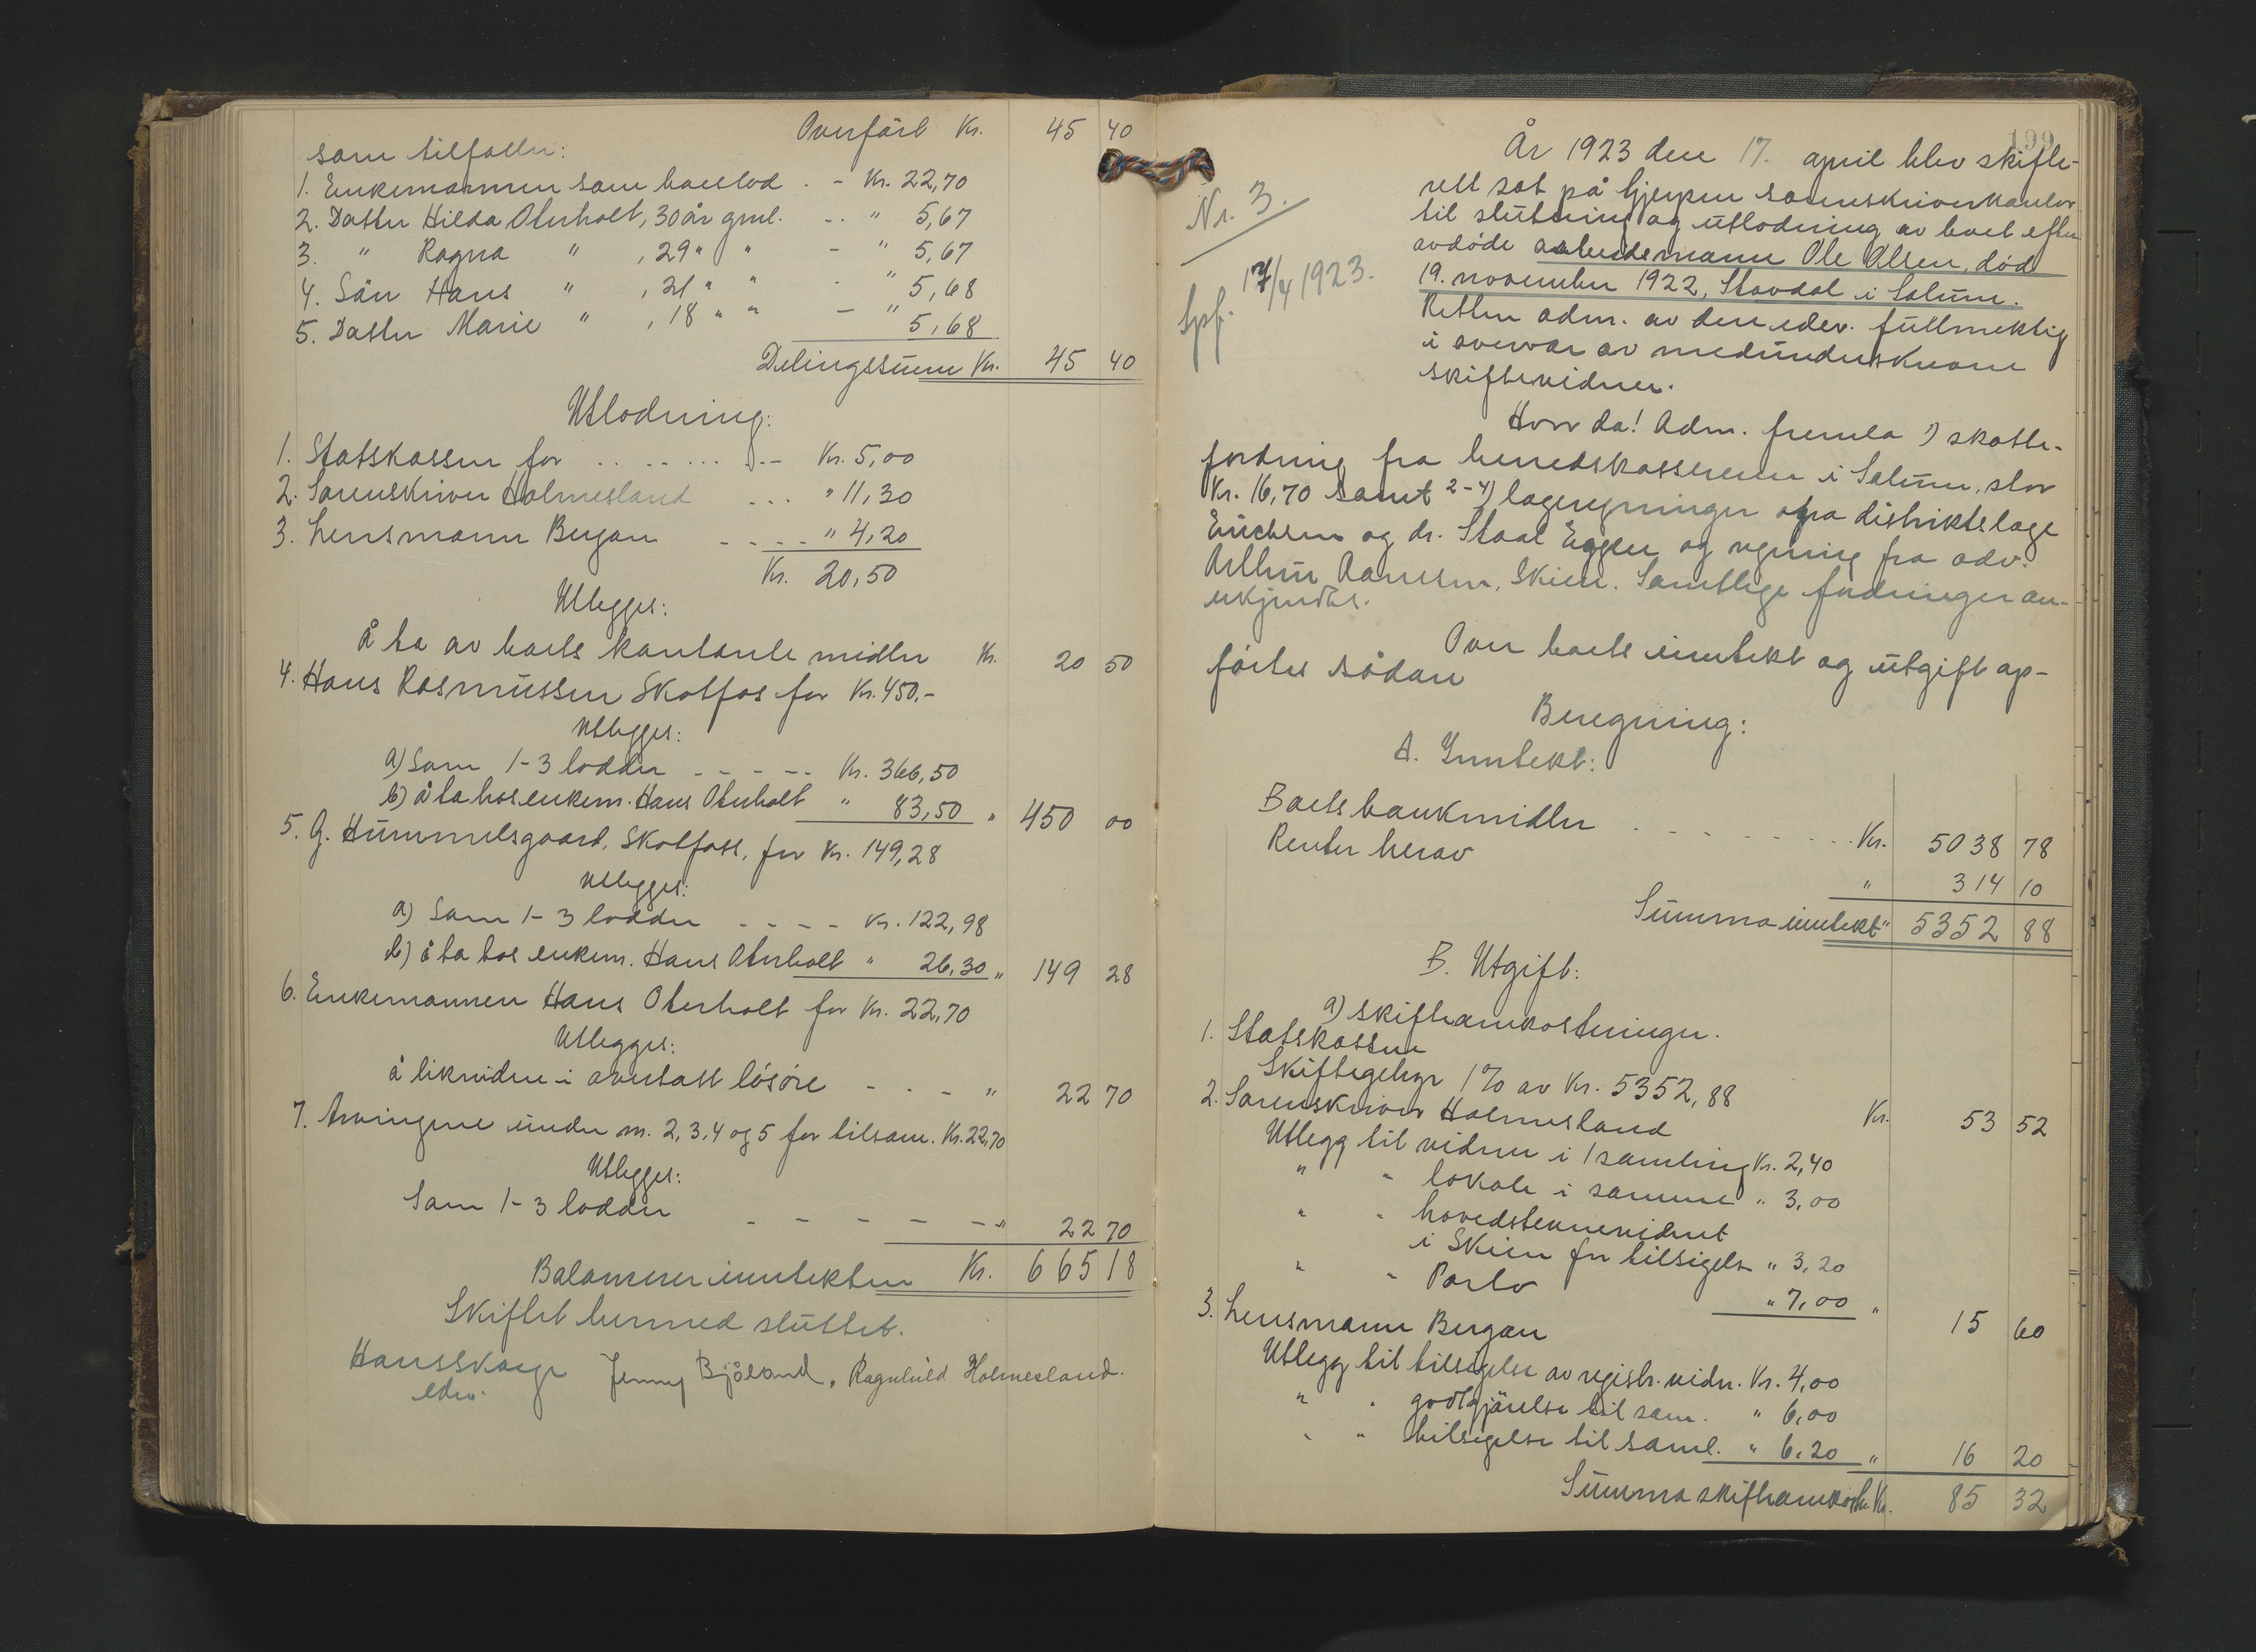 Overført Kr. 45 40
som tilfaller:
1. Enkemannen som boeslod . - Kr. 22,70
2. Datter Hilda Oterholt, 30 år gml. - .. " 5,67
3. " Ragna " , 29 " " - " 5,67
4. Sön Hans " , 21 " " - " 5,68
5. Datter Marie " , 18 " " - " 5,68
Delingssum Kr. 45 40
Utlodning:
1. Statskassen for . . . . . . . . Kr. 5,00
2. Sorenskriver Holmesland . . . " 11,30
3. Lensmann Bergan - - - - " 4,20
Kr. 20,50
Utlegges:
å ta av boets kontante midler Kr. 20 50
4. Hans Rasmussen Skotfos for Kr. 450.-
Utlegges:
a) Som 1-3 lodder - - - - - Kr. 366,50
b) å ta hos enkem. Hans Oterholt " 83,50 " 450 00
5. G. Hummelsgaard, Skotfoss, for Kr. 149,28
Utlegges:
a) Som 1-3 lodder - - - - Kr. 122,98
b) å ta hos enkem. Hans Oterholt " 26,30 " 149 28
6. Enkemannen Hans Oterholt for Kr. 22,70
Utlegges:
å likvidere i overtatt lösöre - - - " 22 70
7. Arvingene under nr. 2, 3, 4 og 5 for tilsam. Kr. 22,70
Utlegges:
Som 1-3 lodder - - - - - " 22 70
Balanserer inntekten Kr. 665 18
Skiftet hermed sluttet.
Hans Skaege Jenny Bjåland, Ragnhild Holmesland.
edsv.
199
År 1923 den 17. april blev skifte-
rett sat på Gjerpen sorenskriverkontor
til slutning og utlodning av boet efter
avdöde arbeidsmann Ole Olsen, död
19. november 1922, Stavdal i Solum.
Nr. 3.
17/4 1923.
Retten adm. av den edsv. fullmektig
i overvær av medunderskrevne
skiftevidner.
Hvor da! Adm. fremla 1) skatte-
fordring fra herredskassereren i Solum, stor
Kr. 16,70 samt 2-4) lægeregninger fra distriktslæge
Erichsen og dr. Staal Eggen og regning fra adv.
Arthur Aanesen, Skien. Samtlige fordringer an-
erkjendtes.
Over boets inntekt og utgift op-
förtes sådan
Beregning:
A. Inntekt:
Boets bankmidler . - - - - - - . . Kr. 5038 78
Renter herav " 314 10
Summa inntekt " 5352 88
B. Utgift:
a) skifteomkostninger.
1. Statskassen
Skiftegebyr 1% av Kr. 5352,88 Kr. 53 52
2. Sorenskriver Holmesland
Utlegg til vidner i 1 samling Kr. 2,40
" " lokale i samme " 3,00
" " hovedstevnevidnet
i Skien for tilsigelse " 3,20
" " Porto " 7,00 " 15 60
3. Lensmann Bergan
Utlegg til tilsigelse av registr. vidn. Kr. 4,00
" " godtgjörelse til sam. " 6,00
" " tilsigelse til saml. " 6,20 " 16 20
Summa skifteomkostn. Kr. 85 32